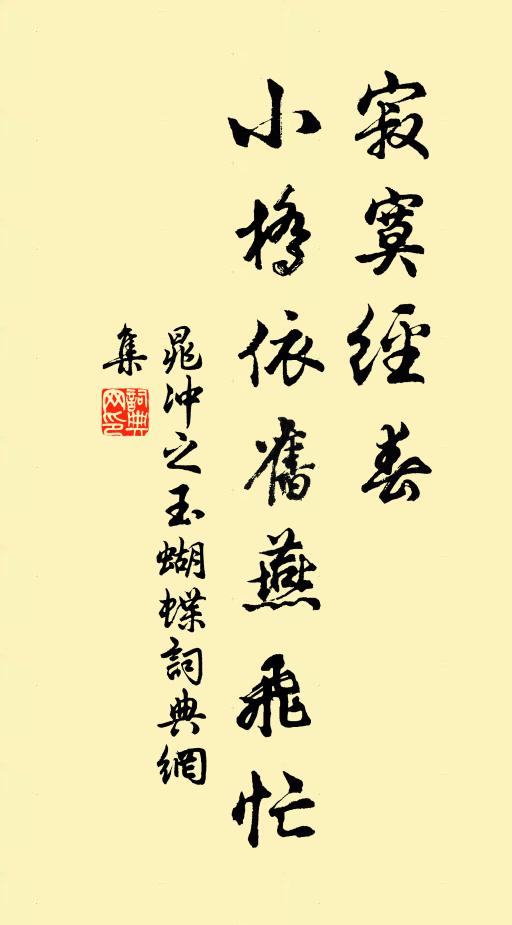 寂寞經春
小橋依舊燕飛忙
晁冲之玉蝴蝶詞典網
集
詞典
网印